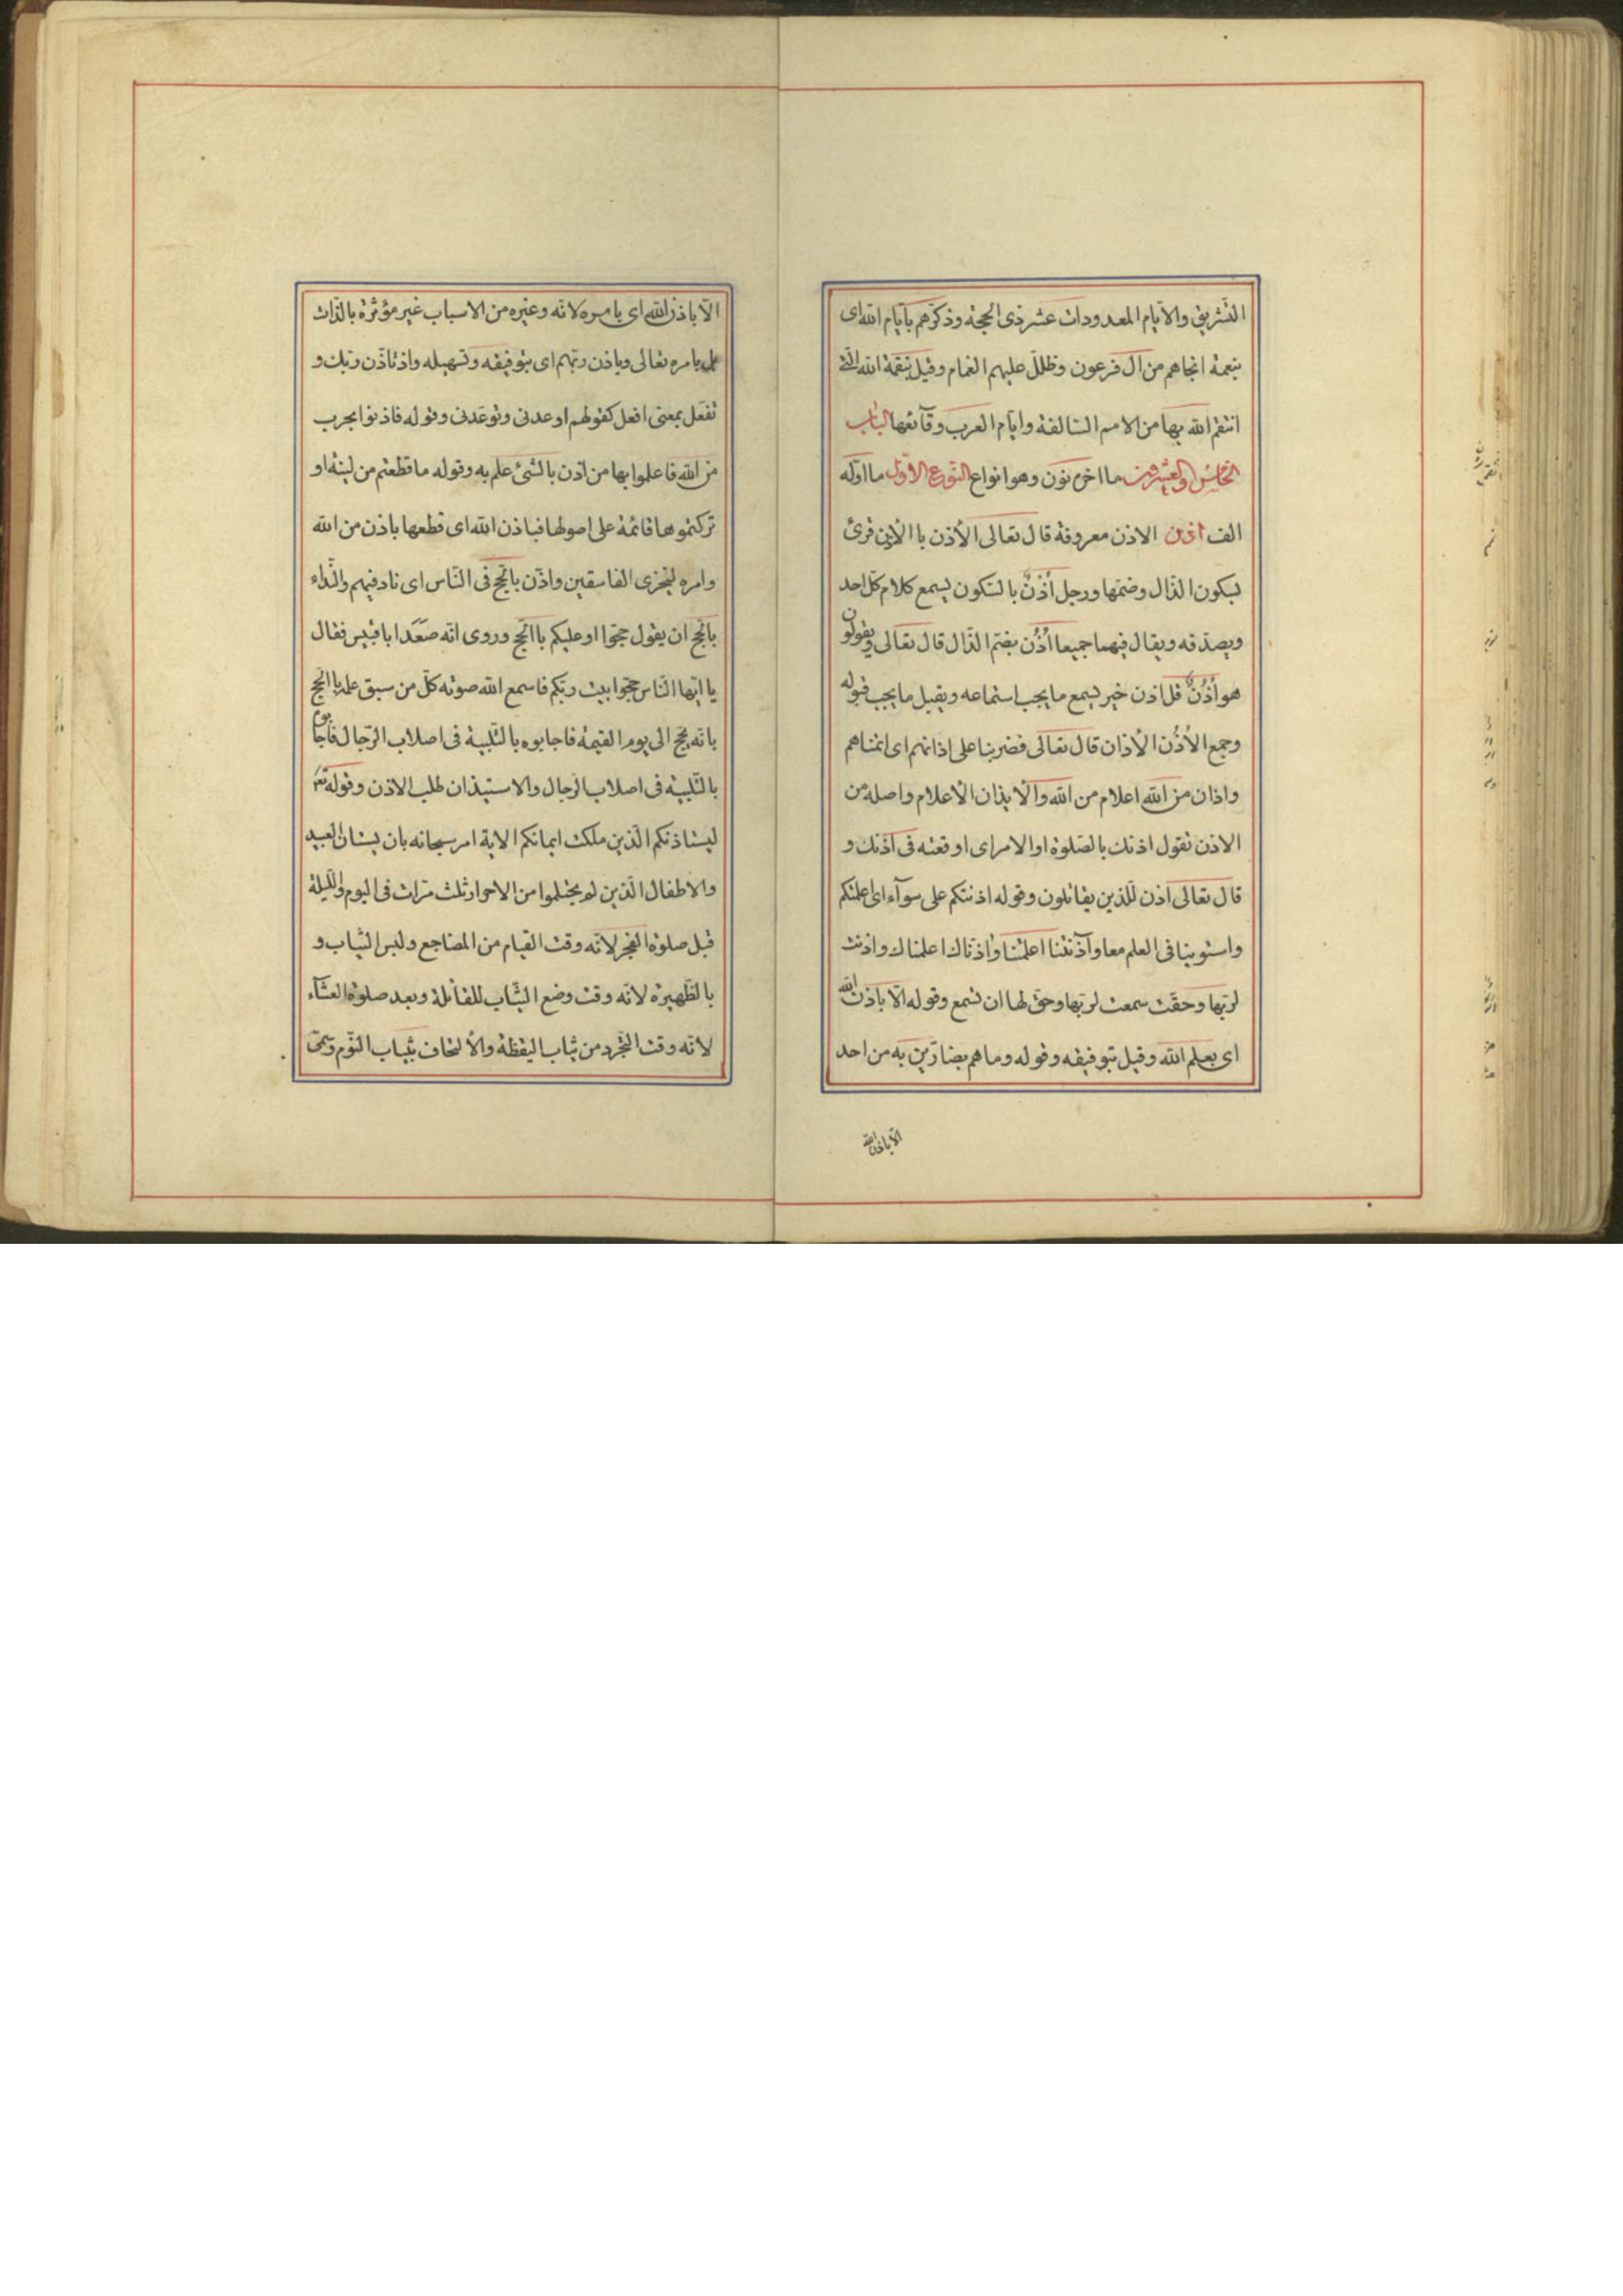 التّشريق والايّام المعدودات عشر ذى الحجّة وذكّرهم بايّام الله اى
بنعمة انجاهم من ال فرعون وظلل عليهم الغمام وقيل بنقمة الله الّتى
انتقم الله بها من الامم السّالفة وايّام العرب وقآئعها الباب
الخامس والعشرون ما اخره نون وهو انواع النّوع الاوّل ما اوّله
الف اذن الاذن معروفة قال تعالى الأذن باالأذن قرئ
بسكون الذّال وضمّها ورجل أُذْنٌ بالسّكون يسمع كلام كلّ احد
ويصدّقه ويقال فيهما جميعا أُذُن بضمّ الذّال قال تعالى ويقولون
هو أُذُنٌ قل اذن خير يسمع ما يجب استماعه ويقبل ما يجب قبوله
وجمع الأذُن الأذان قال تعالى فضربنا على اذانهم اى انمناهم
واذان من الله اعلام من الله والأيذان الأعلام واصله من
الاذن تقول اذنك بالصّلوة او الامر اى اوقعته فى اذنك و
قال تعالى اذن للّذين يقاتلون وقوله اذنتكم على سوآء اى اعلمتكم
واستوينا فى العلم معا وآذنتنا اعلمتنا واذنّاك اعلمناك واذنت
لربّها وحقّت سمعت لربّها وحقّ لها ان تسمع وقوله الّا باذن الله
اى بعلم الله وقيل بتوفيقه وقوله وما هم بضارّين به من احد
الّا باذن الله
الّا باذن الله اى بامره لانّه وغيره من الاسباب غير مؤثرة بالذّات
بل بامره تعالى وباذن ربّهم اى بتوفيقه وتسهيله واذ تاذّن ربّك و
تفعّل بمعنى افعل كقولهم اوعدنى وتوعّدنى وقوله فاذنوا بحرب
من الله فاعلموا بها من اذن بالشّئ علم به وقوله ما قطعتم من لينة او
تركتموها قائمة على اصولها فباذن الله اى قطعها باذن من الله
وامره ليخزى الفاسقين واذّن بالحجّ فى النّاس اى ناد فيهم والنّداء
بالحجّ ان يقول حجّوا او عليكم باالحجّ وروى انّه صعّد ابا قبيس فقال
يا ايّها النّاس حجّوا بيت ربّكم فاسمع الله صوته كلّ من سبق علمه باالحجّ
بانّه يحجّ الى يوم القيمة فاجابوه بالتّلبية فى اصلاب الرّجال فاجابوه
بالتّلبية فى اصلاب الرّجال والاستيذان طلب الاذن وقوله تع
ليستاذنكم الّذين ملكت ايمانكم الاية امر سبحانه بان يستاذن العبيد
والاطفال الّذين لم يحتلموا من الاحرار ثلث مرّات فى اليوم واللّيلة
قبل صلوة الفجر لانّه وقت القيام من المضاجع ولبس الثّياب و
بالظّهيرة لانّه وقت وضع الثّياب للقائلة وبعد صلوة العشآء
لانّه وقت التّجرد من ثياب اليقظة والألتحاف بثياب النّوم وسمّى